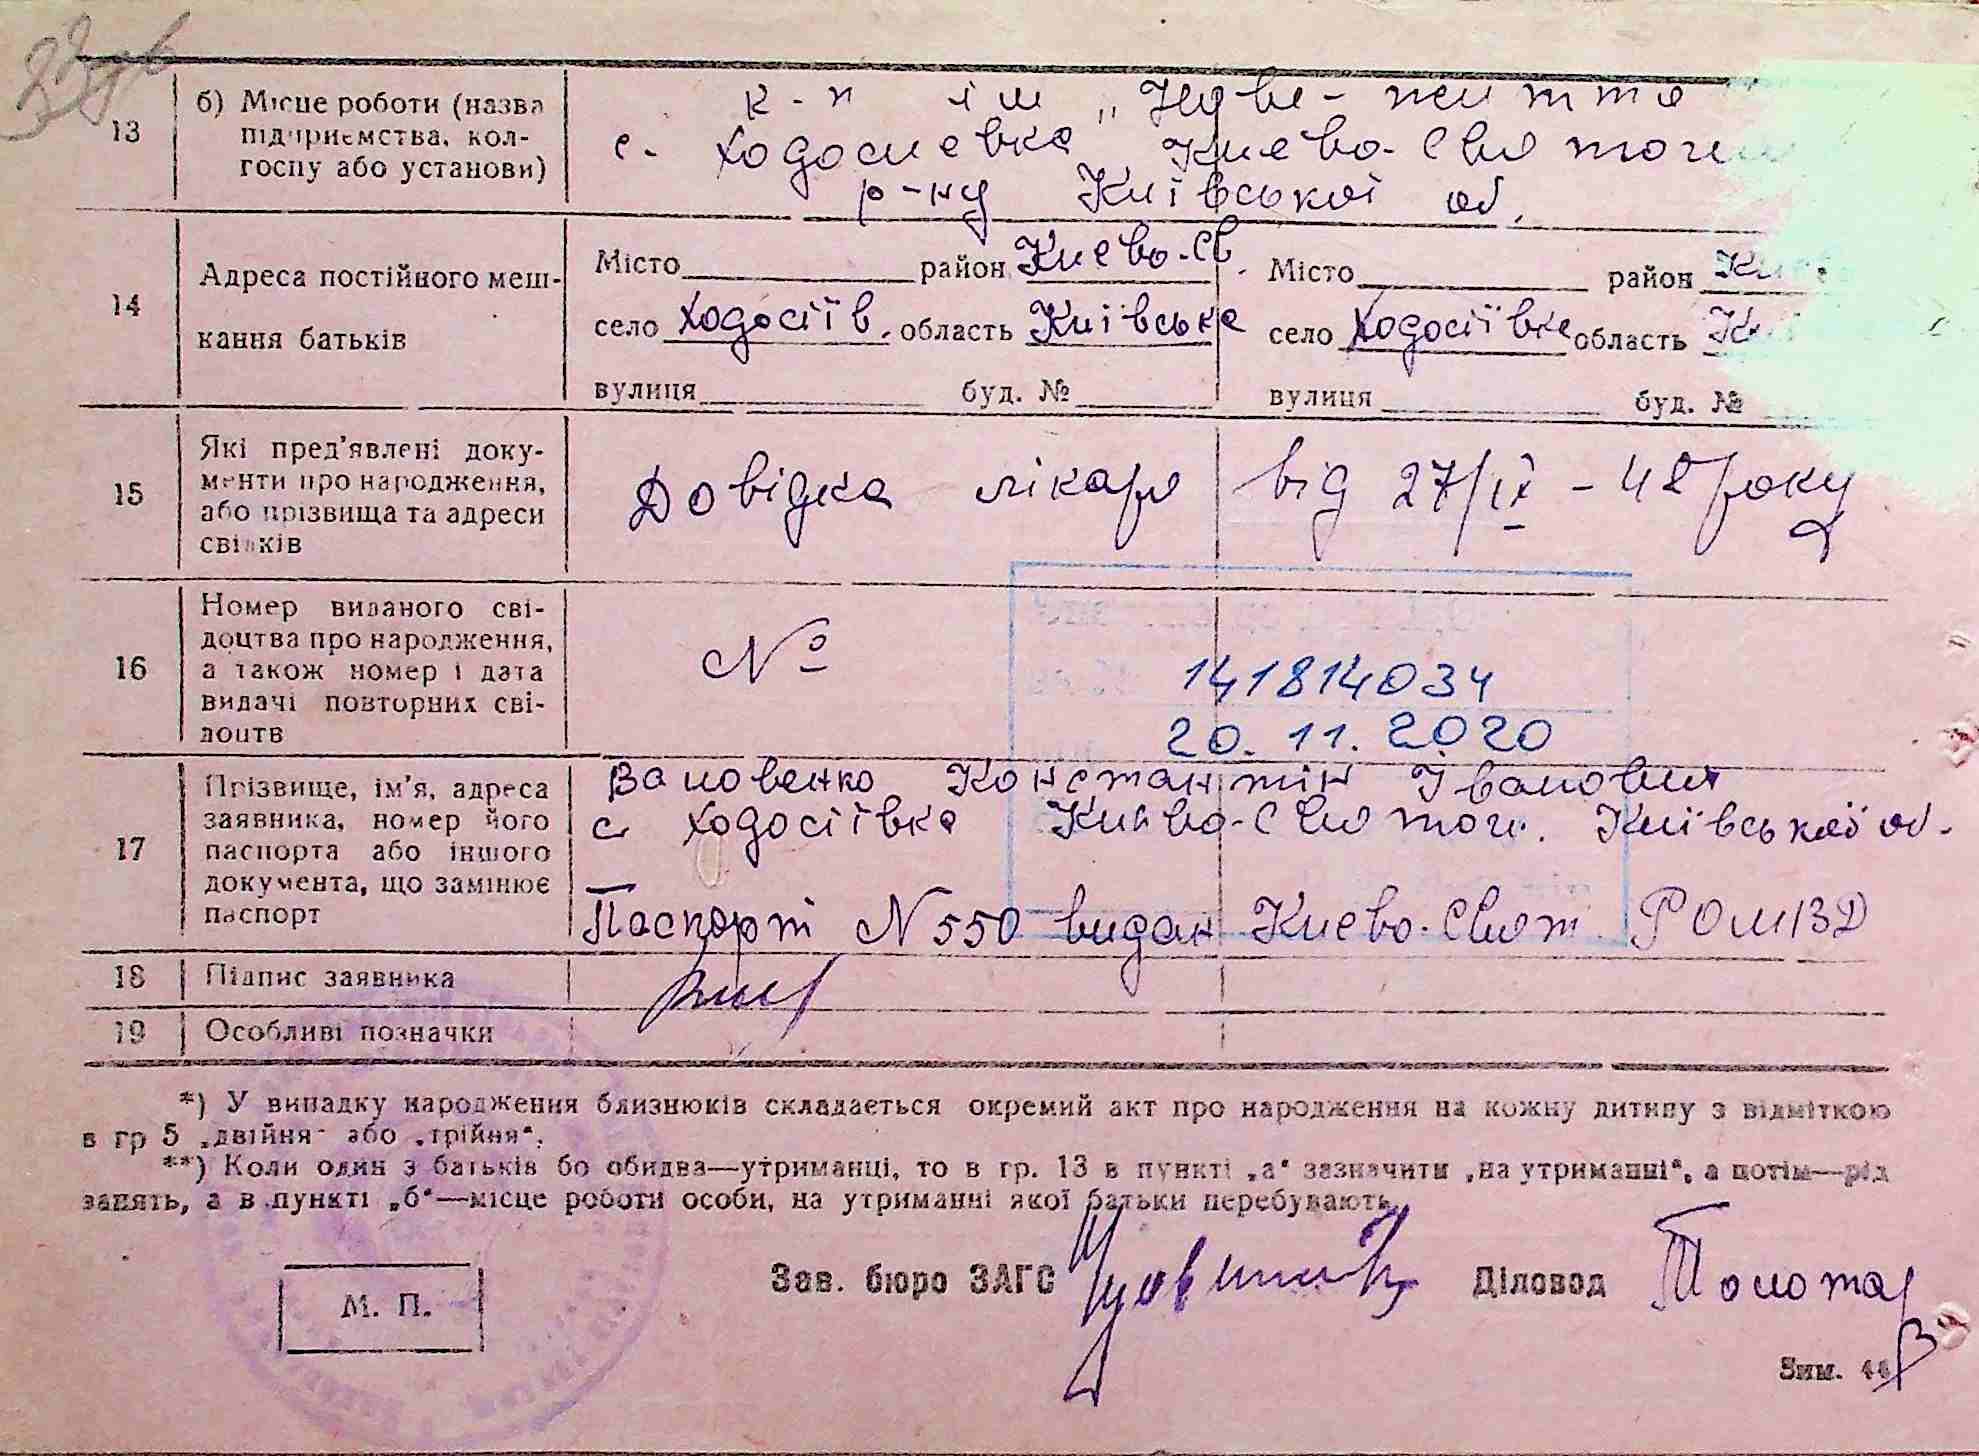 13
б) Місце роботи (назва
підприємства, кол-
госпу або установи)
к-п ім „Нове-життя
с. Ходосиевка Києво-Святош
р-ну Київської об.
14
Адреса постійного меш-
кання батьків
Місто район Києво-Св. Місто район
село Ходосіїв. область Київська село Ходосіївка область
вулиця буд. № вулиця буд. №
15
Які пред'явлені доку-
менти про народження,
або прізвища та адреси
свідків
Довідка лікаря від 27/ІХ - 48 року
16
Номер виданого сві-
доцтва про народження,
а також номер і дата
видачі повторних сві-
доцтв
№
141814034
20.11.2020
17
Прізвище, ім'я, адреса
заявника, номер його
паспорта або іншого
документа, що замінює
паспорт
Константін Іванович
с Ходосіївка Києво-Святош. Київської об.
Паспорт N 550 видан Києво-Свят. РОМВД
18 Підпис заявника
19 Особливі позначки
*) У випадку народження близнюків складається окремий акт про народження на кожну дитину з відміткою
в гр 5 „двійня" або „трійня".
**) Коли один з батьків бо обидва—утриманці, то в гр. 13 в пункті „а" зазначити „на утриманні", а потім—рід
занять, а в пункті „б"—місце роботи особи, на утриманні якої батьки перебувають.
Зав. бюро ЗАГС Діловод
М. П.
Зим. 44